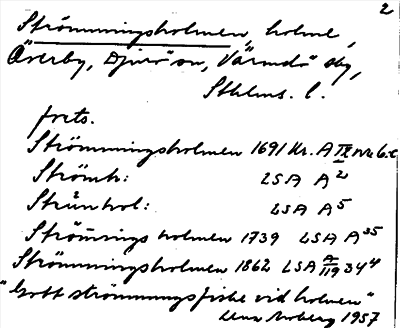 2
Strömmingsholmen, holme,
Överby, Djurö sn, Värmdö sky,
Sthlms. l.
forts.
Strömmingsholmen 1691 Kr. A IX nr 6:c
Strömh: LSA A2
Strünhol: LSA A5
Strömings holmen 1739 LSA A35
Strömmingsholmen 1862 LSA A/119 344
"Gott strömmingsfiske vid holmen"
Moberg 1957